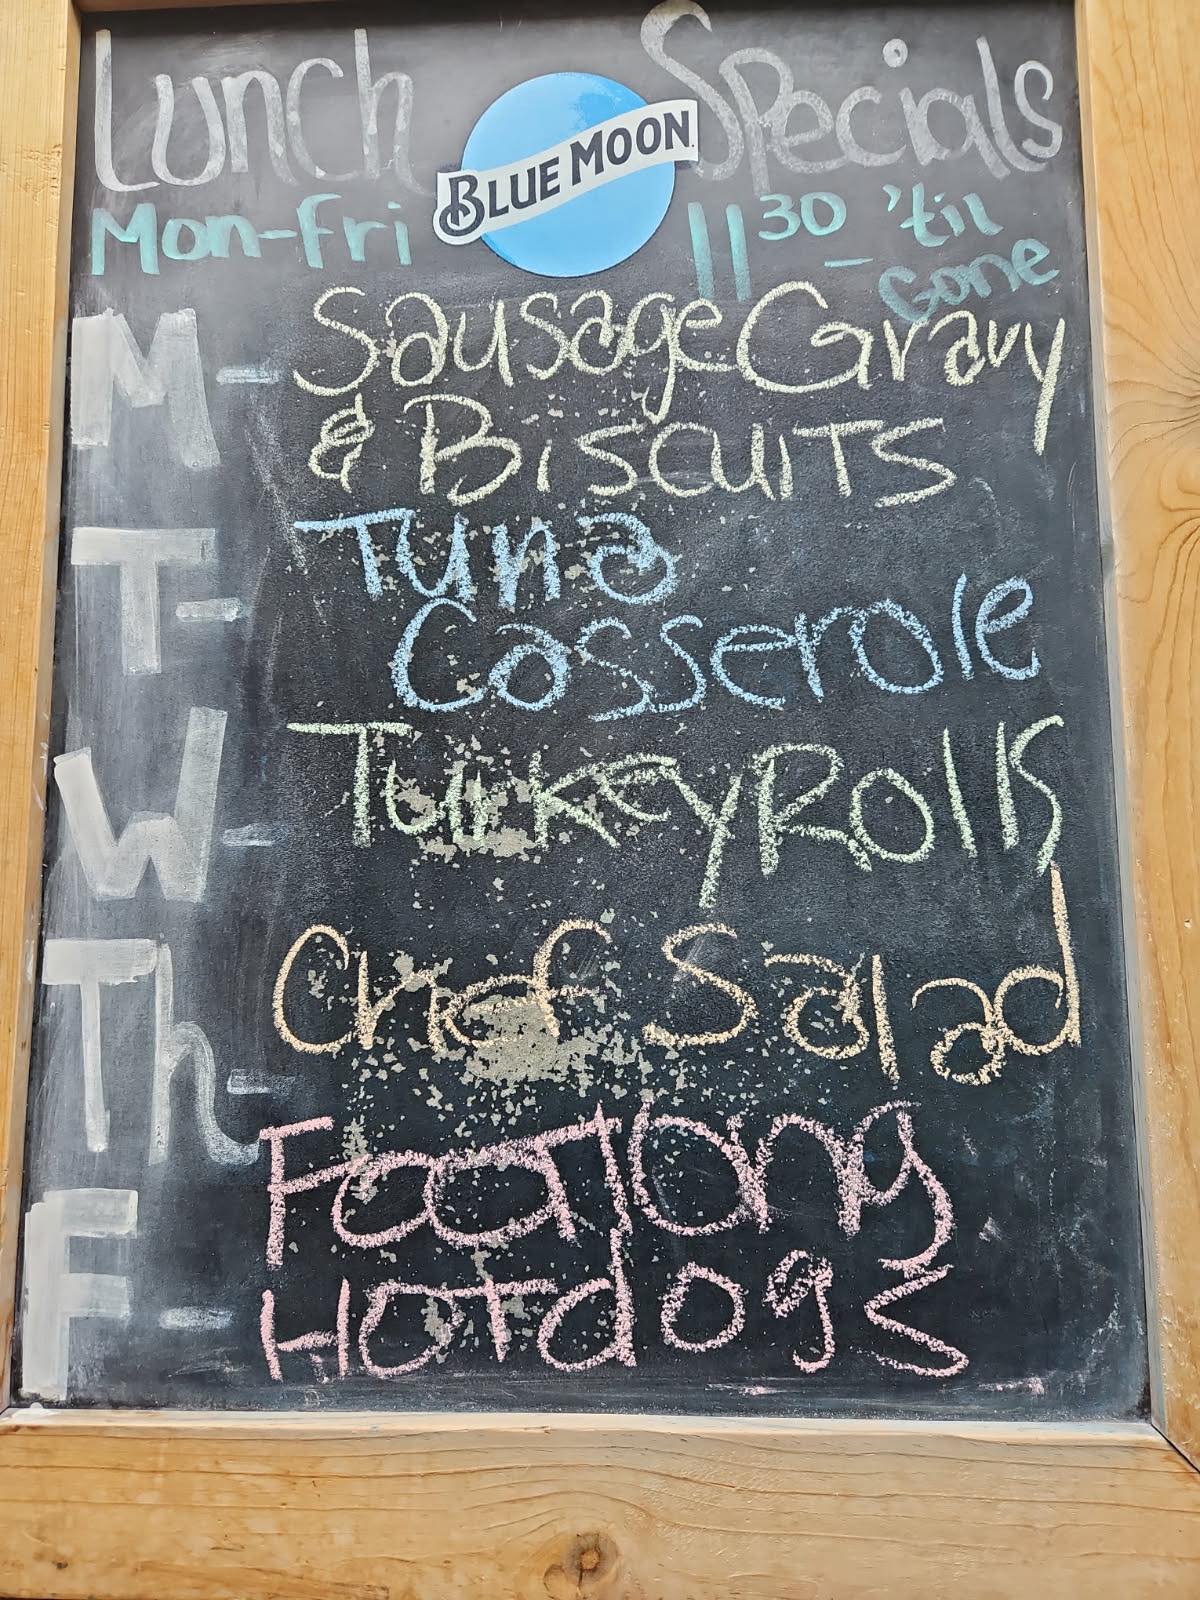 Lunch Specials
BLUE MOON
Mon-Fri 11 30 - 'til
Gone
M- Sausage Gravy
& BiscuiTs
T- Tuna
Casserole
W- Turkey Rolls
Th- Chef Salad
F- Footlong
HOTdogs